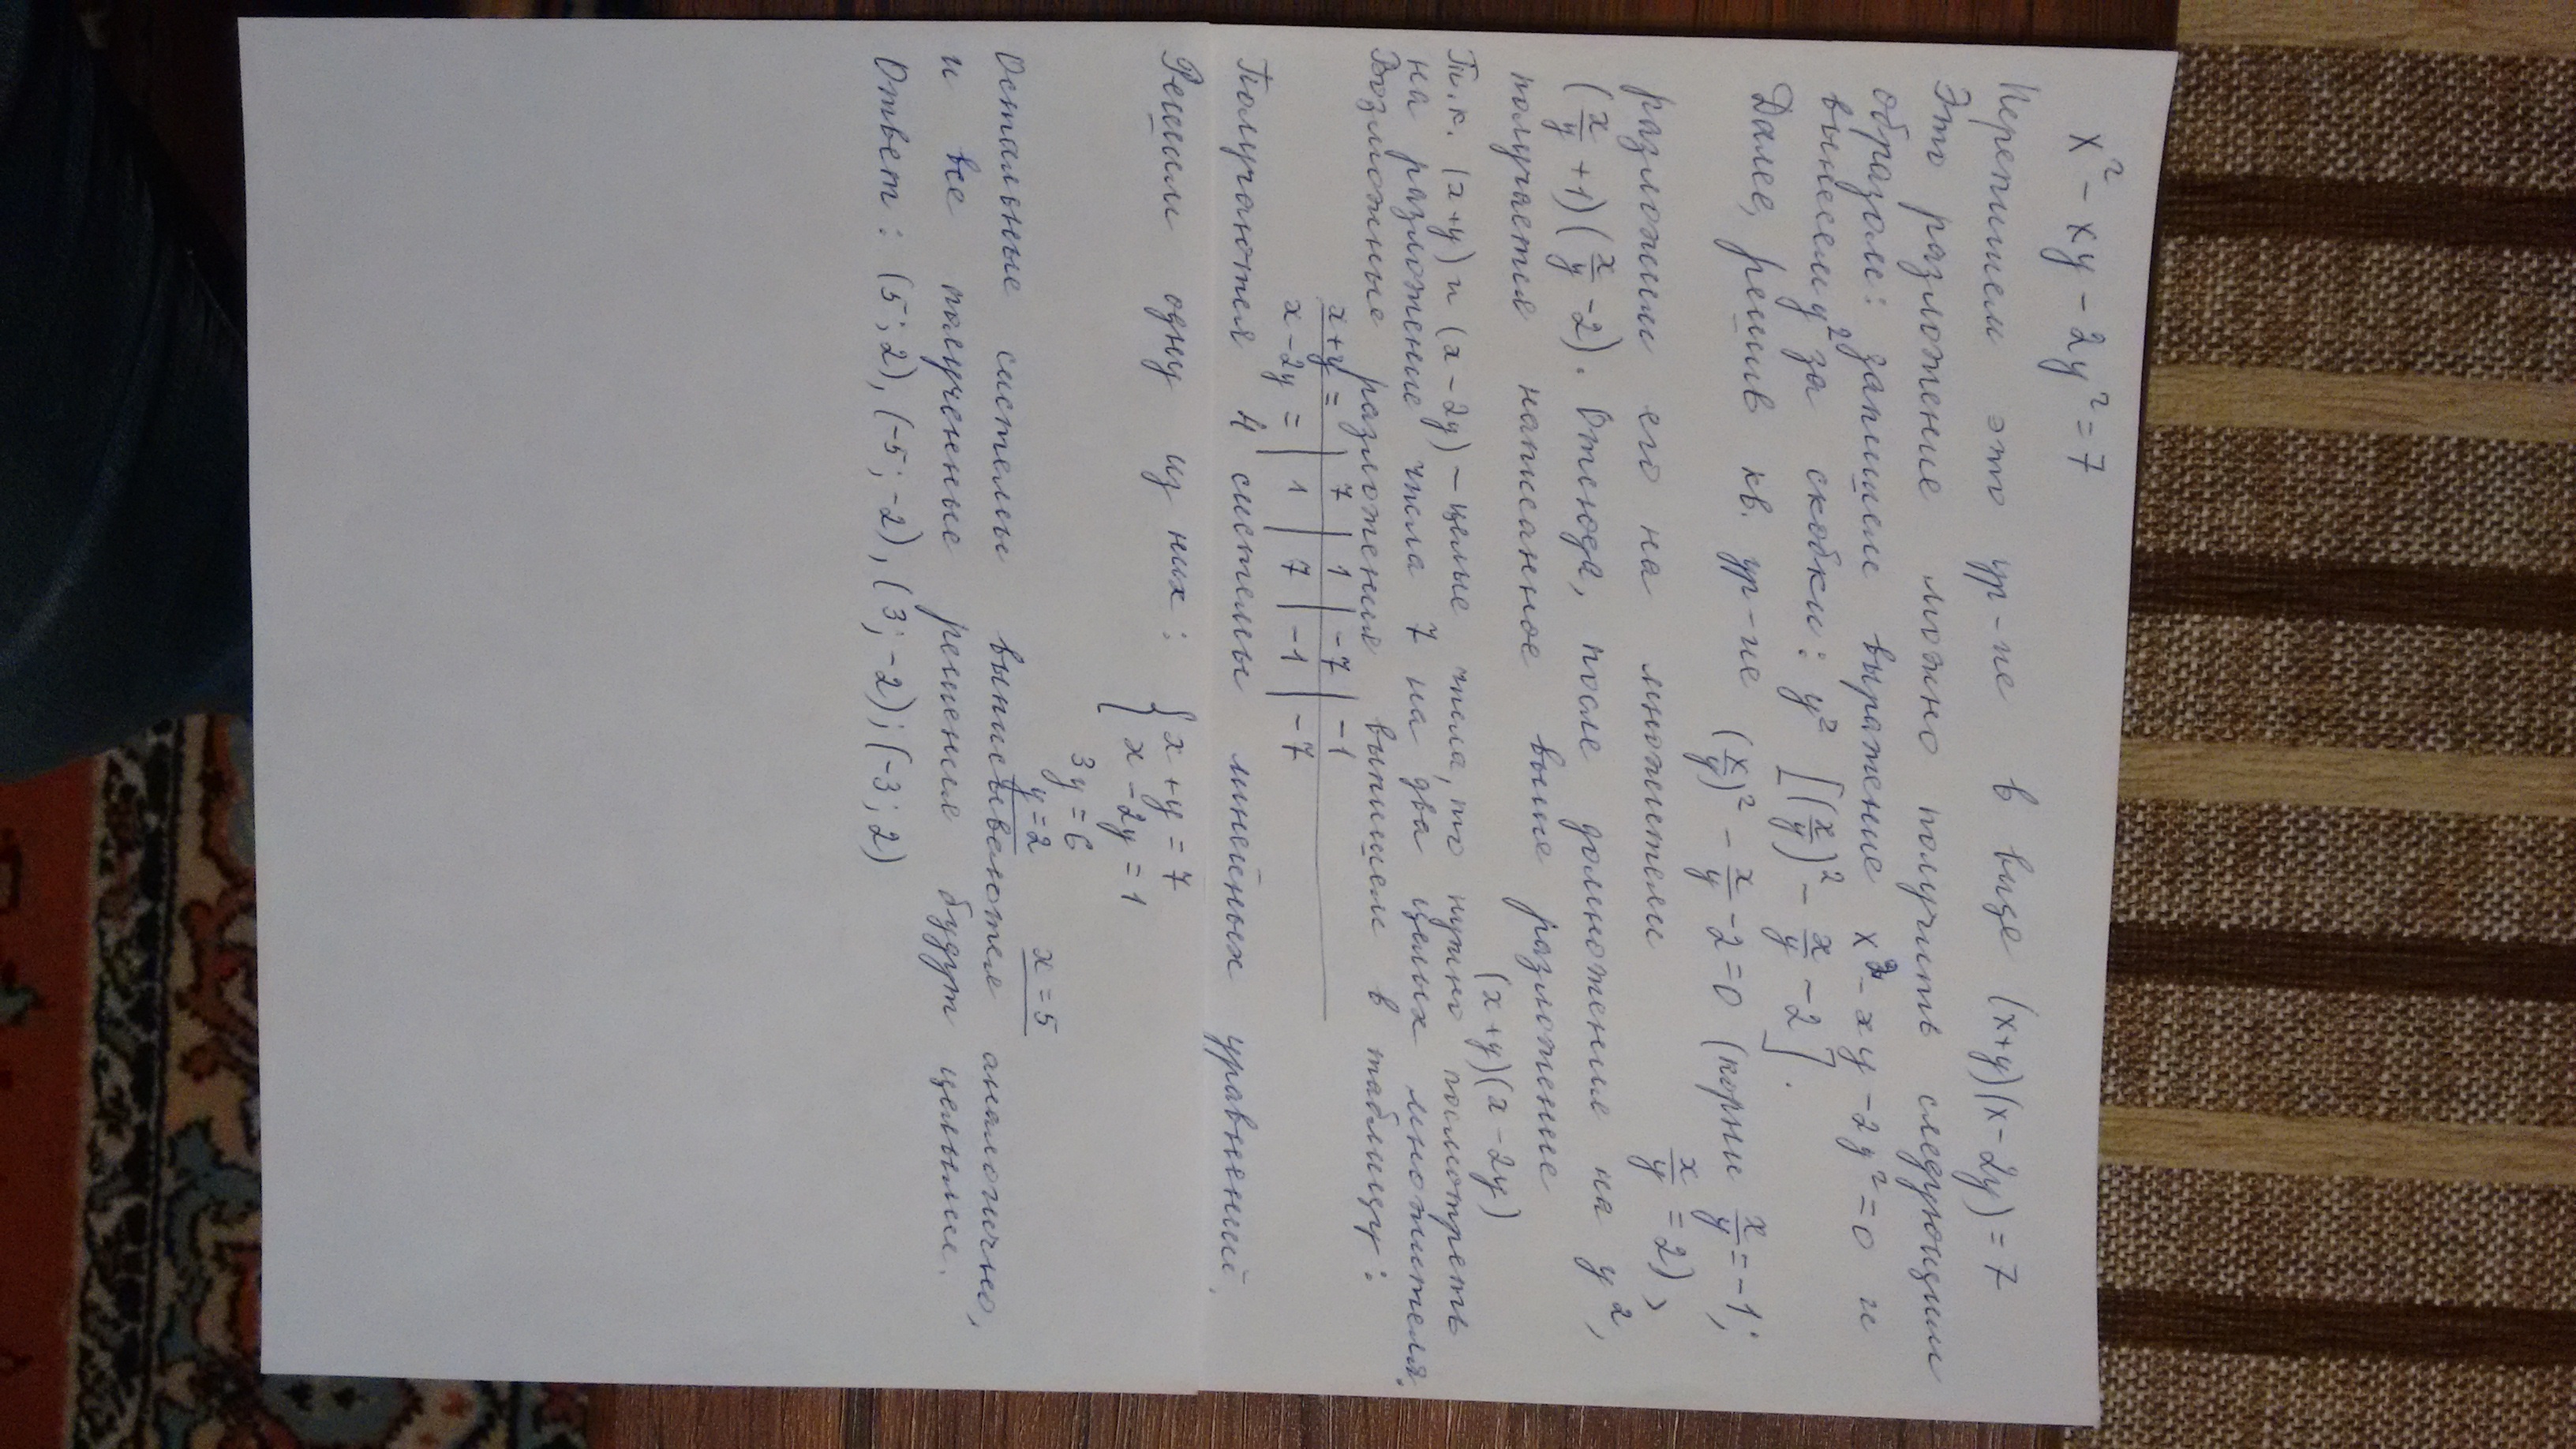 x² - xy - 2y² = 7
Перепишем это ур-ие в виде (x+y)(x-2y) = 7
Это разложение можно получить следующим
образом: запишем выражение x² - xy - 2y² = 0 и
вынесем y² за скобки: y² [(x/y)² - x/y - 2].
Далее, решив кв. ур-ие (x/y)² - x/y - 2 = 0 (корни x/y = -1;
x/y = 2),
разложим его на множители
(x/y + 1)(x/y - 2). Отсюда, после домножения на y²,
получается написанное выше разложение
(x+y)(x-2y)
Т.к. (x+y) и (x-2y) - целые числа, то нужно посмотреть
на разложение числа 7 на два целых множителя.
Возможные разложения выпишем в таблицу:
x+y = | 7 | 1 | -7 | -1
x-2y = | 1 | 7 | -1 | -7
Получаются 4 системы линейных уравнений.
Решим одну из них: { x+y = 7
{ x-2y = 1
3y = 6
y = 2 x = 5
Остальные системы выписываются аналогично,
и все полученные решения будут целыми.
Ответ: (5; 2), (-5; -2), (3; -2); (-3; 2)